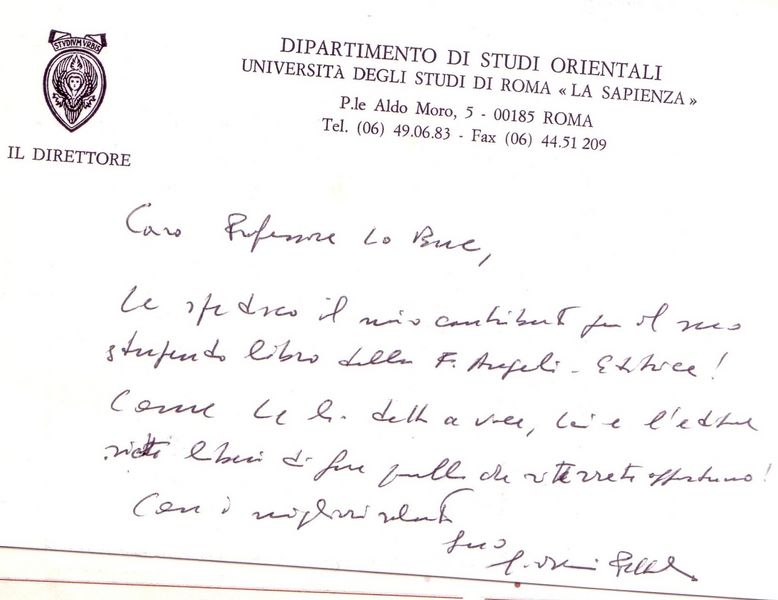 STVDIVM VRBIS
IL DIRETTORE
DIPARTIMENTO DI STUDI ORIENTALI
UNIVERSITÀ DEGLI STUDI DI ROMA « LA SAPIENZA »
P.le Aldo Moro, 5 - 00185 ROMA
Tel. (06) 49.06.83 - Fax (06) 44.51 209
Caro Professore Lo Bue,
Le spedisco il mio contributo per il suo
stupendo libro della F. Angeli - Editrice!
Come Le ho detto a voce, Lei e l'editore
siete liberi di fare quello che riterrete opportuno!
Con i migliori saluti
Suo